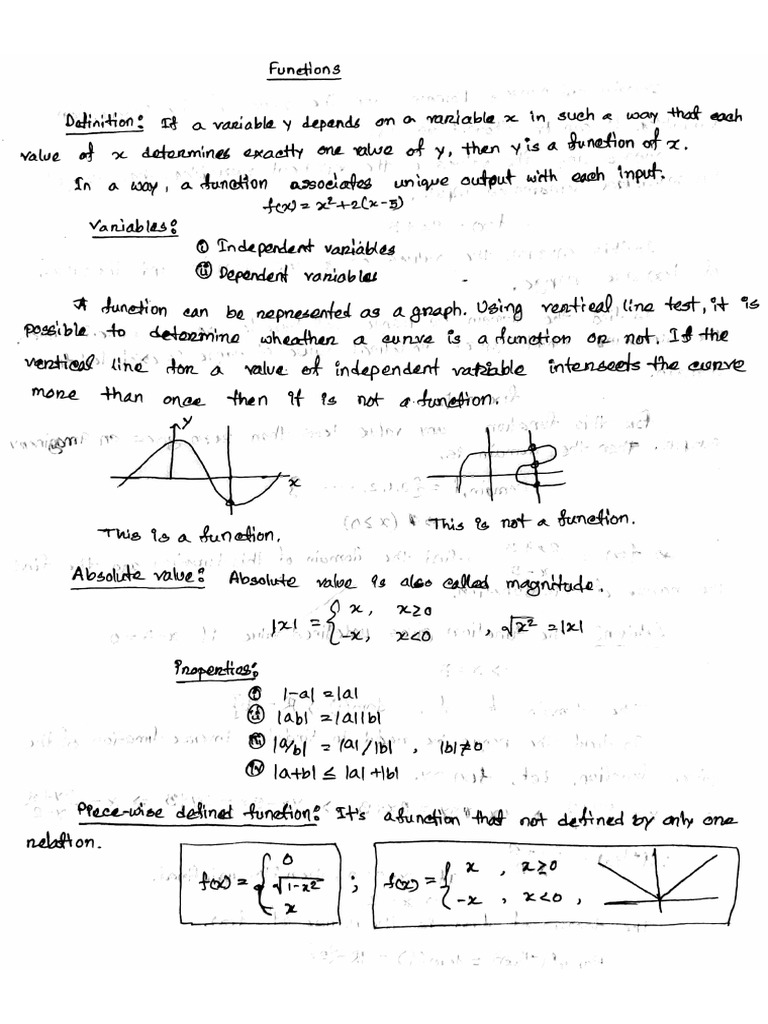 Functions
Definition: If a variable y depends on a variable x in such a way that each
value of x determines exactly one value of y, then y is a function of x.
In a way, a function associates unique output with each input.
f(x) = x²+2(x-5)
Variables:
(i) Independent variables
(ii) Dependent variables
A function can be represented as a graph. Using vertical line test, it is
possible to determine wheather a curve is a function or not. If the
vertical line for a value of independent variable intersects the curve
more than once then it is not a function.
y
x
This is a function.
This is not a function.
Absolute value: Absolute value is also called magnitude.
|x| = { x, x≥0
-x, x<0 , √x² = |x|
Properties:
(i) |-a| = |a|
(ii) |ab| = |a||b|
(iii) |a/b| = |a|/|b| , |b|≠0
(iv) |a+b| ≤ |a|+|b|
Piece-wise defined function: It's a function that not defined by only one
relation.
f(x) = { 0
√1-x²
x ;
f(x) = { x , x≥0
-x , x<0 ,